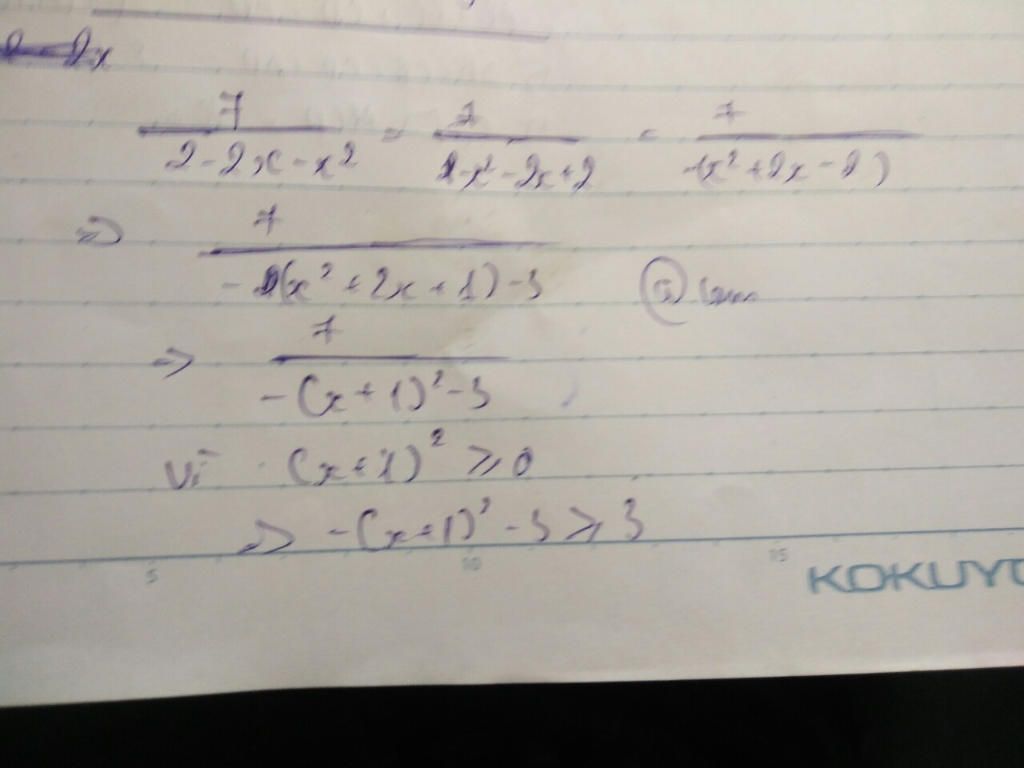 2 - 2x
7/(2 - 2x - x²) = 7/(-x² - 2x + 2) = 7/(-(x² + 2x - 2))
=> 7/(-(x² + 2x + 1) - 3)
=> 7/(-(x + 1)² - 3)
Vì (x + 1)² ≥ 0
=> -(x + 1)² - 3 ≥ 3
5 10 15
KOKUYO